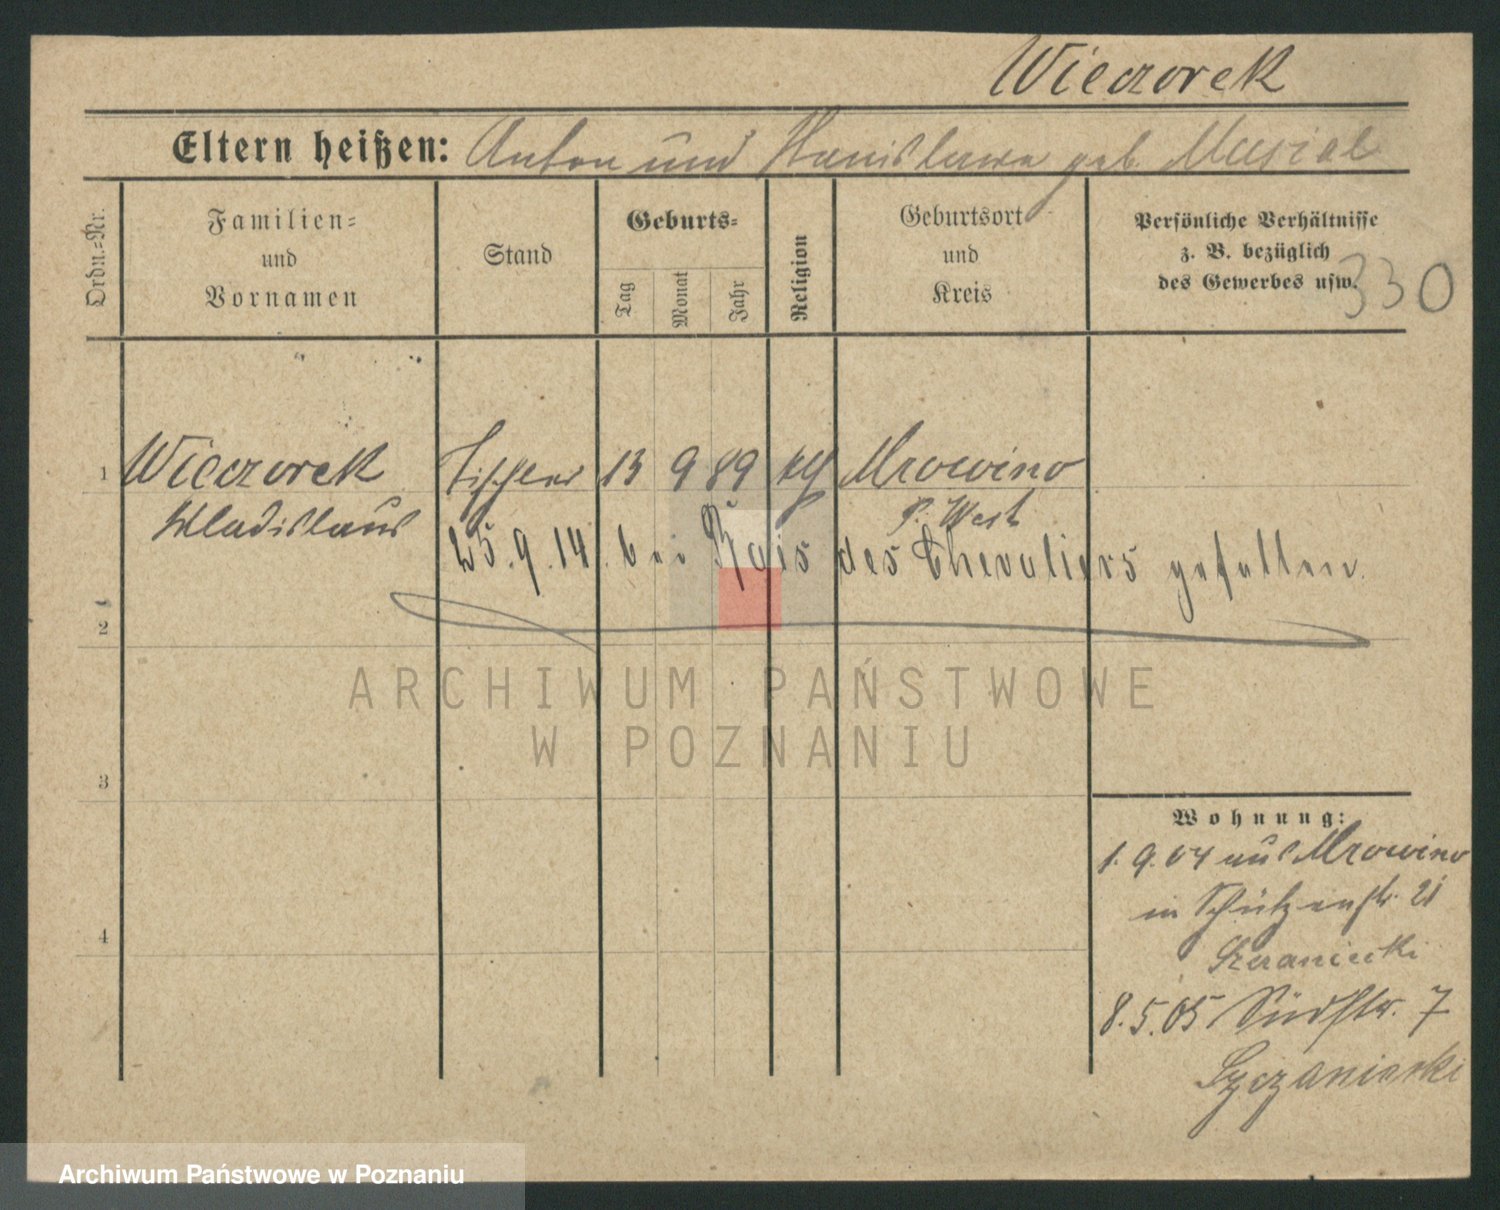 Wieczorek
Eltern heißen: Anton und Stanislawa geb. Musial
Ordn.=Nr.
Familien=
und
Vornamen
Stand
Geburts=
Tag
Monat
Jahr
Religion
Geburtsort
und
Kreis
Persönliche Verhältnisse
z. B. bezüglich
des Gewerbes usw.
330
1 Wieczorek Tischler 13 9 89 kth Mrowino
Wladislaus P. West
25.9.14. bei Bois des Chevaliers gefallen.
2
ARCHIWUM PAŃSTWOWE
W POZNANIU
3
Wohnung:
1.9.04 aus Mrowino
in Schützenstr. 21
4
8.5.05 Südstr. 7
Archiwum Państwowe w Poznaniu